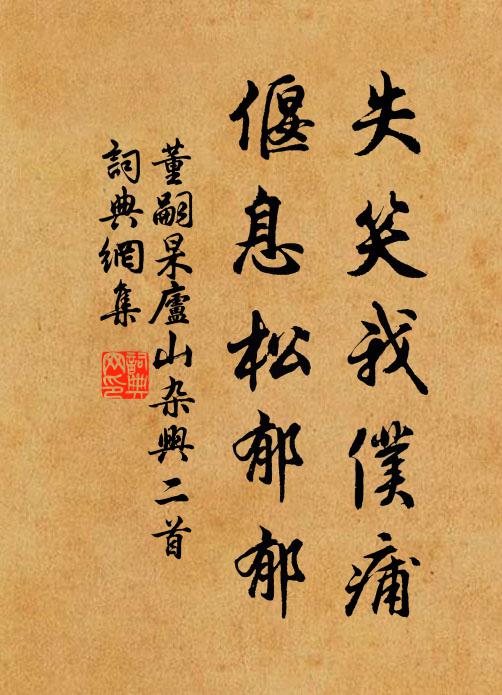 失笑我僕痡
偃息松郁郁
董嗣杲廬山杂興二首
詞典網集
詞典网印